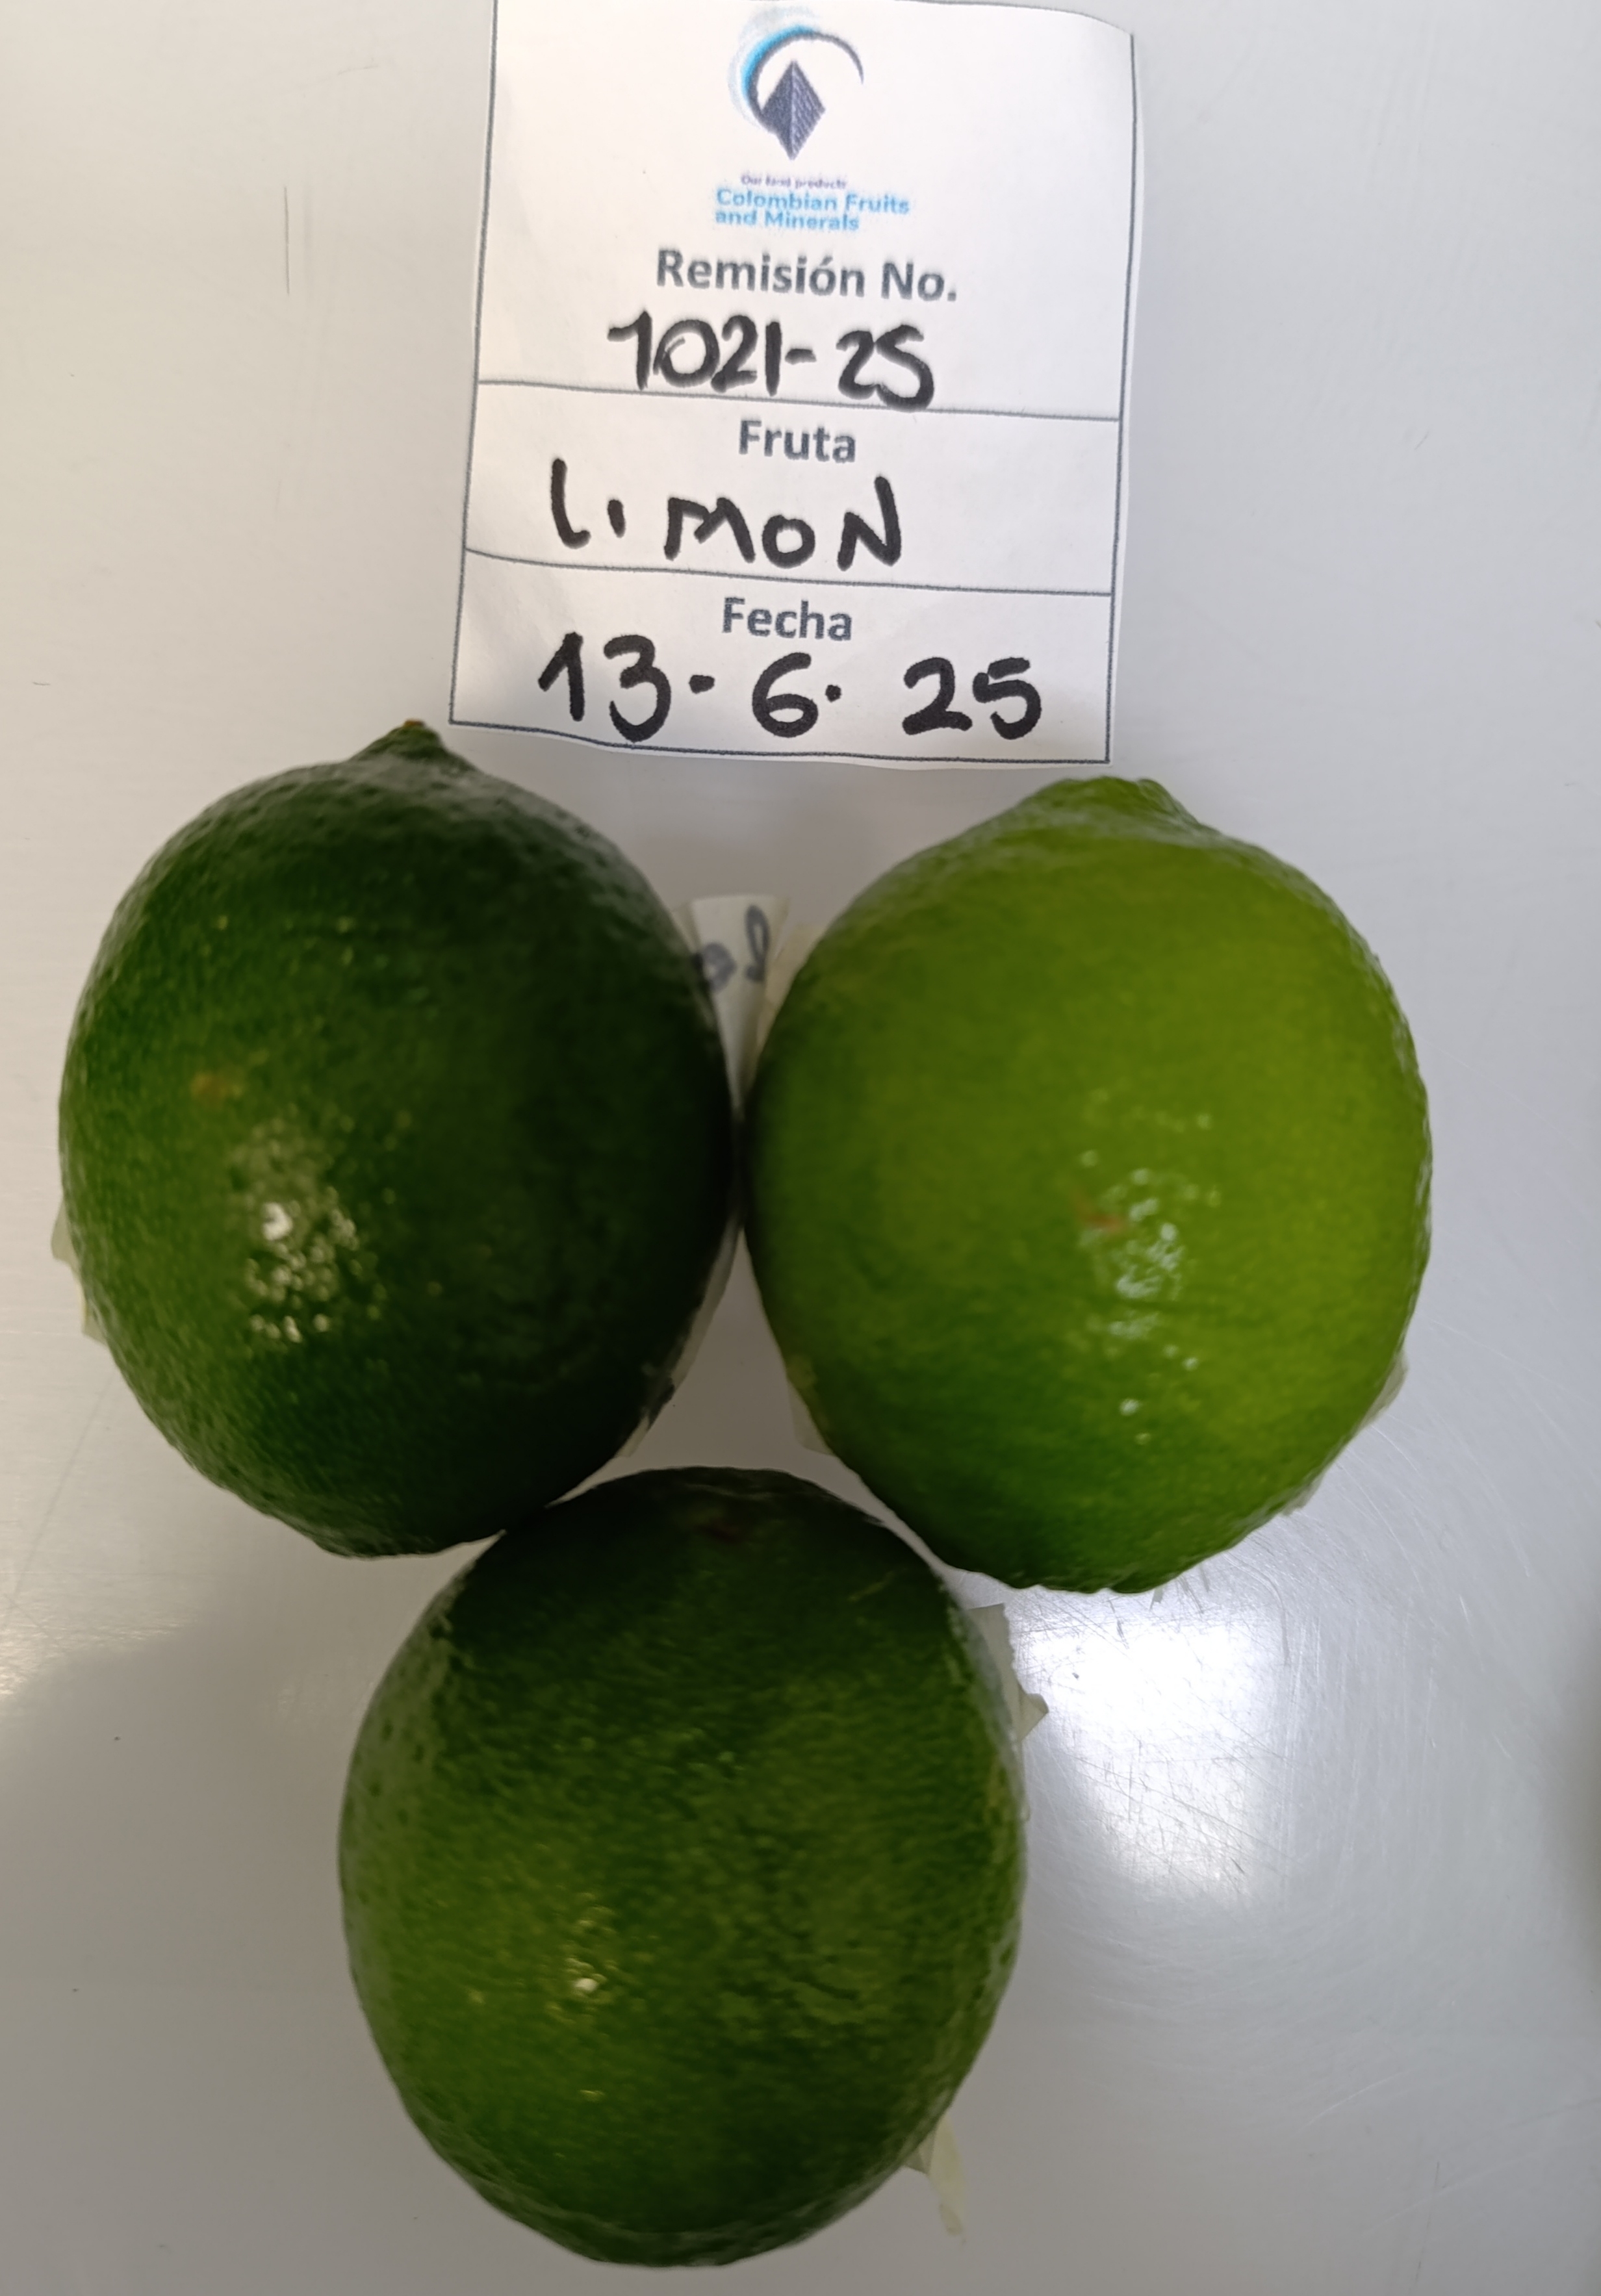 Our best products
Colombian Fruits
and Minerals
Remisión No.
1021-25
Fruta
LiMON
Fecha
13-6-25